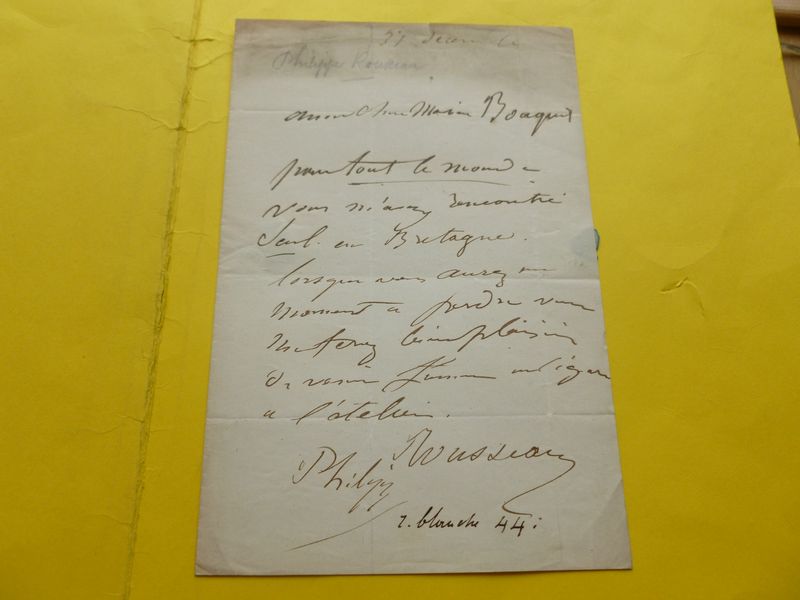 31 Decembre
Philippe Rousseau
mon cher Monsieur Bouquet
pour tout le monde
vous m'avez rencontré
Seul en Bretagne.
lorsque vous aurez un
moment a perdre vous
me ferez bien plaisir
de venir fumer un cigare
a l'atelier.
Philippe Rousseau
r. blanche 44.